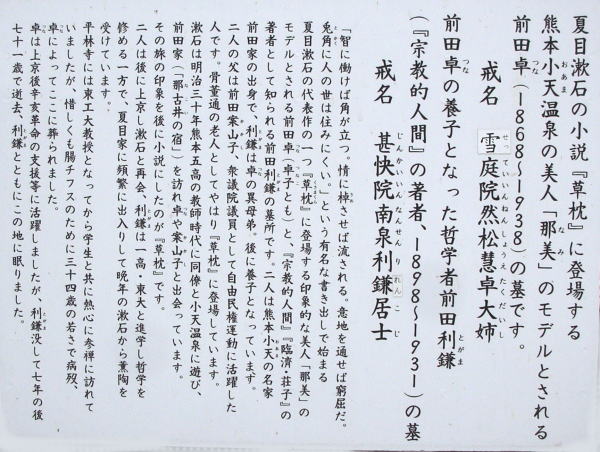 夏目漱石の小説『草枕』に登場する
熊本小天温泉の美人「那美」のモデルとされる
前田卓（1868〜1938）の墓です。
戒名 雪庭院然松慧卓大姉
前田卓の養子となった哲学者前田利鎌
（『宗教的人間』の著者、1898〜1931）の墓
戒名 甚快院南泉利鎌居士
「智に働けば角が立つ。情に棹させば流される。意地を通せば窮屈だ。
兎角に人の世は住みにくい。」という有名な書き出しで始まる
夏目漱石の代表作の一つ『草枕』に登場する印象的な美人「那美」の
モデルとされる前田卓（卓子とも）と、『宗教的人間』『臨済・荘子』の
著者として知られる前田利鎌の墓所です。二人は熊本小天の名家
前田家の出身で、利鎌は卓の異母弟。後に養子となっています。
二人の父は前田案山子、衆議院議員として自由民権運動に活躍した
人です。骨董通の老人としてやはり『草枕』に登場しています。
漱石は明治三十年熊本五高の教師時代に同僚と小天温泉に遊び、
前田家（「那古井の宿」）を訪れ卓や案山子と出会っています。
その旅の印象を後に小説にしたのが『草枕』です。
二人は後に上京し漱石と再会、利鎌は一高・東大と進学し哲学を
修める一方で、夏目家に頻繁に出入りして晩年の漱石から薫陶を
受けています。
平林寺には東工大教授となってから学生と共に熱心に参禅に訪れて
いましたが、惜しくも腸チフスのために三十四歳の若さで病歿、
卓によってここに葬られました。
卓は上京後辛亥革命の支援等に活躍しましたが、利鎌没して七年の後
七十一歳で逝去、利鎌とともにこの地に眠りました。